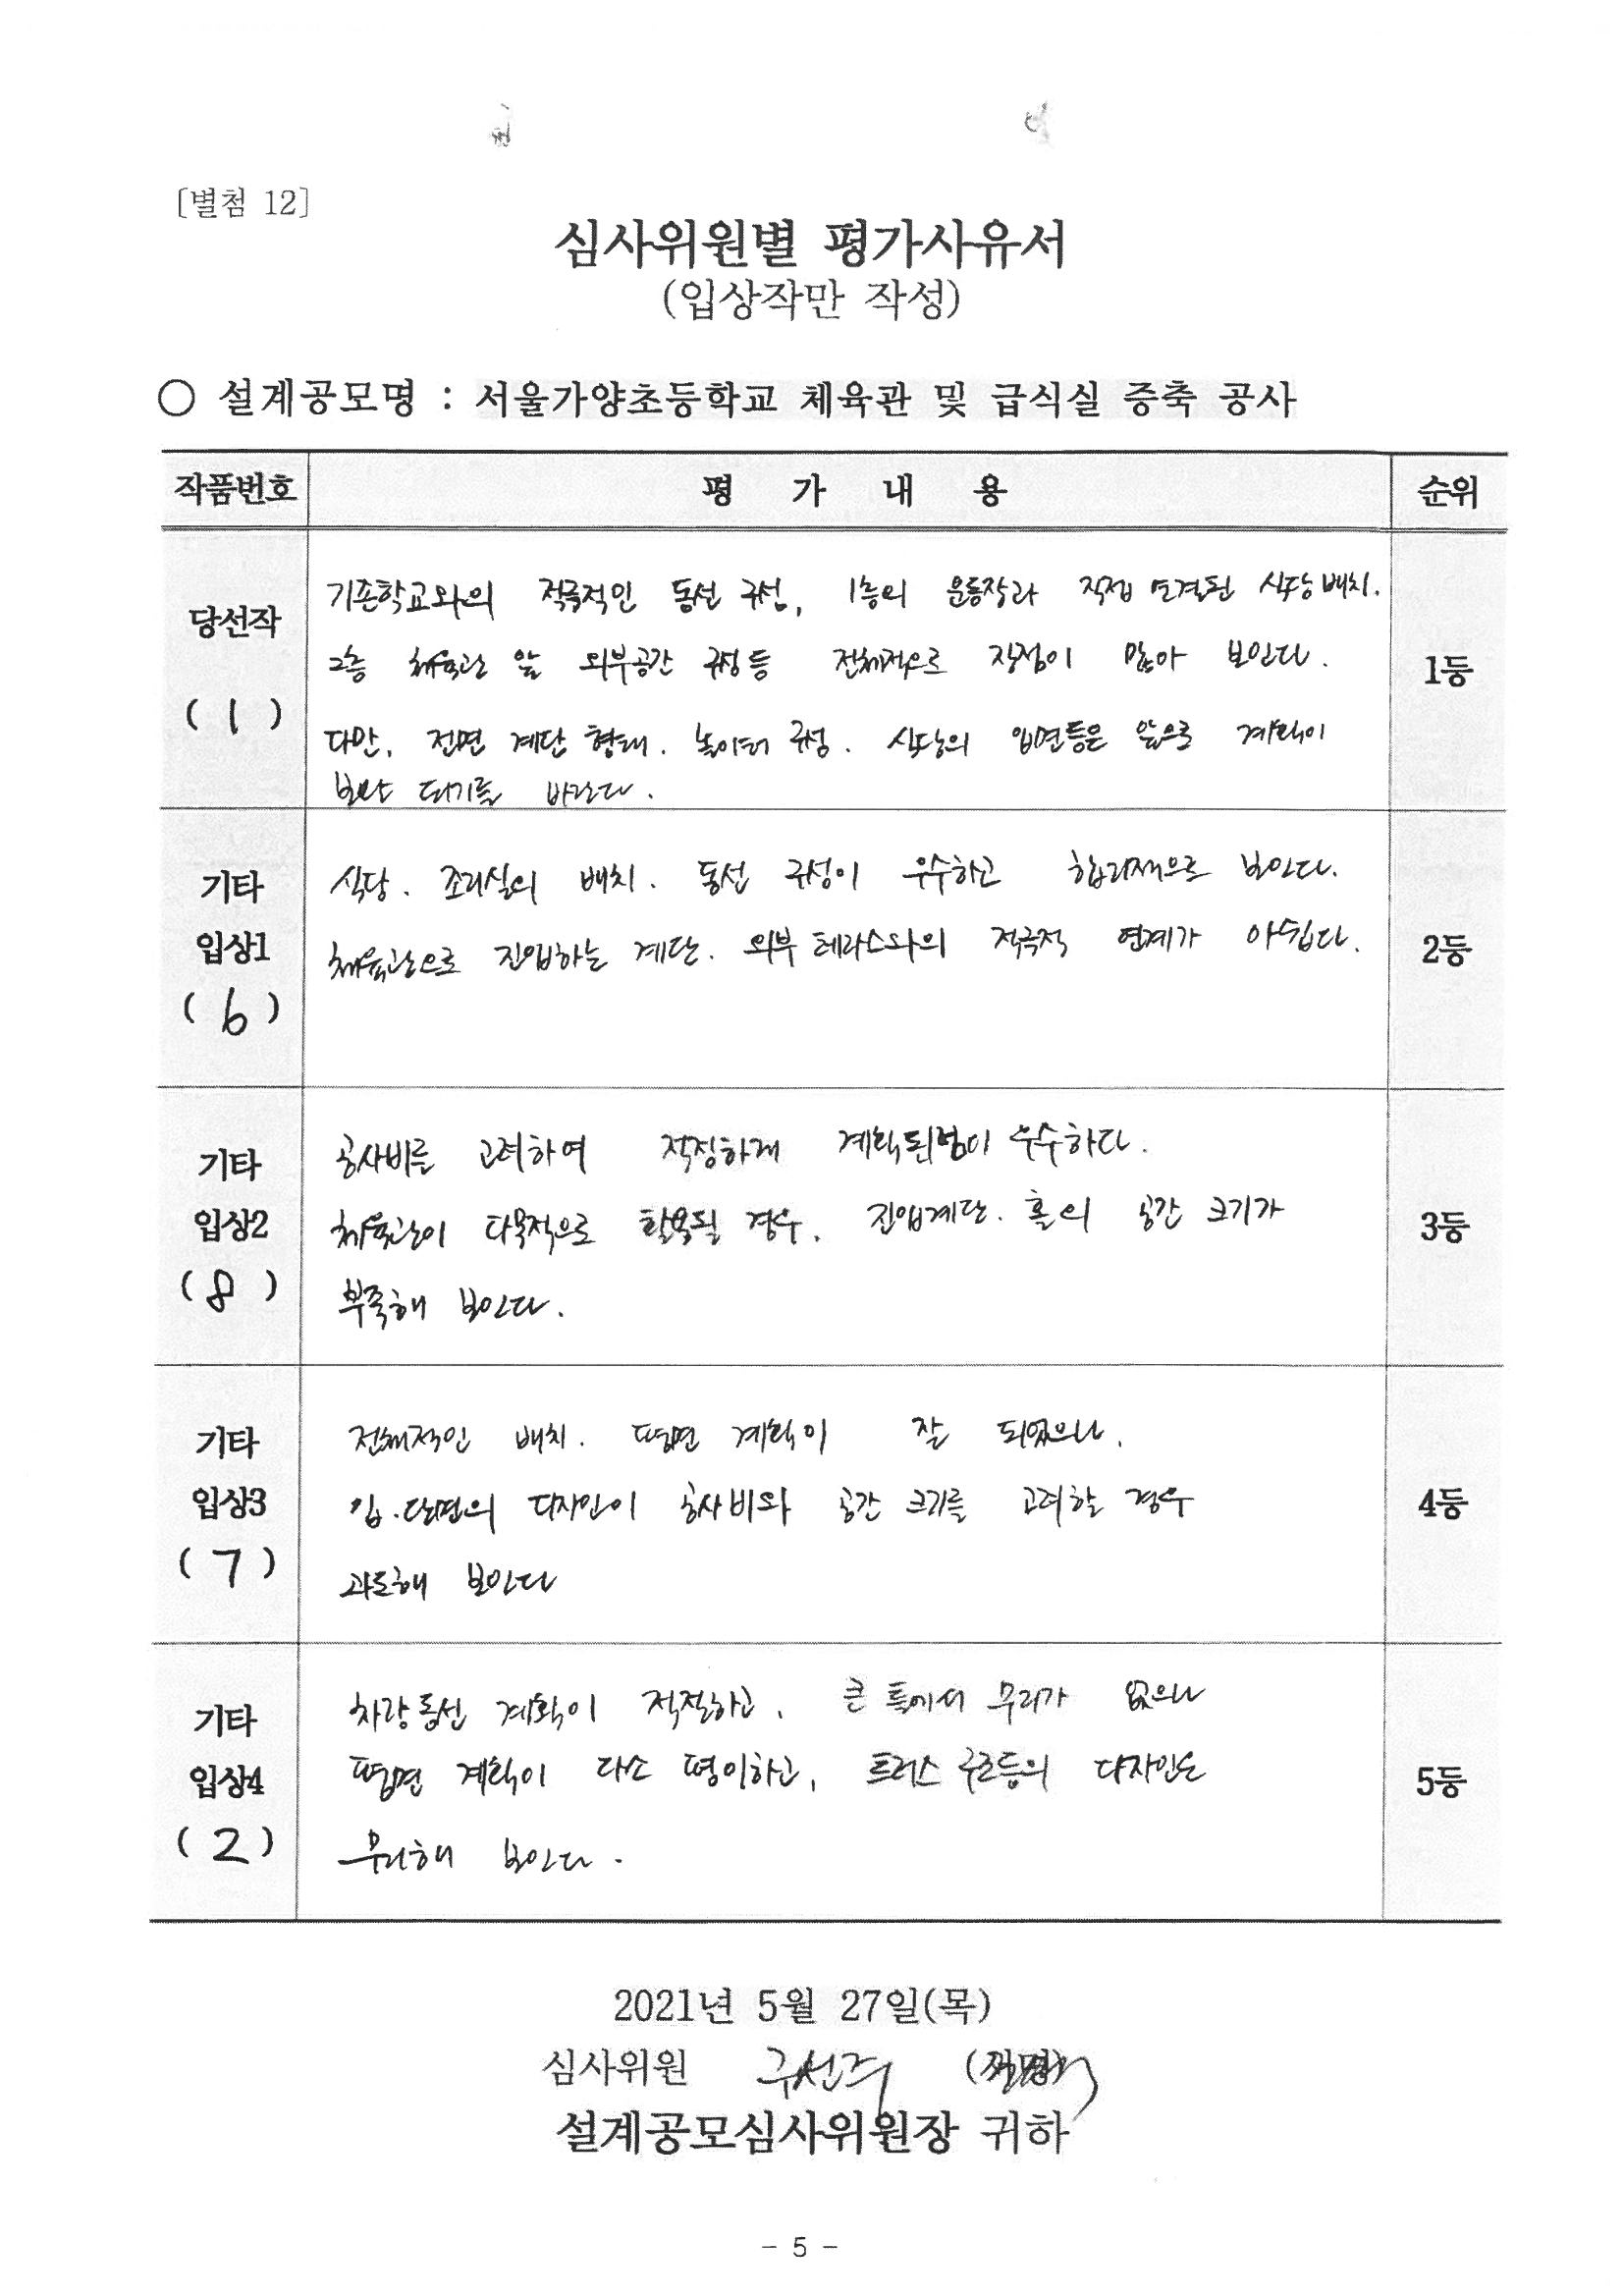 [별첨 12]
심사위원별 평가사유서
(입상작만 작성)
○ 설계공모명 : 서울가양초등학교 체육관 및 급식실 증축 공사
작품번호 평 가 내 용 순위
당선작
( 1 )
기존학교와의 적극적인 동선 구성, 1층의 운동장과 직접 연결된 식당 배치.
2층 체육관 앞 외부공간 구성 등 전체적으로 장점이 많아 보인다.
다만, 전면 계단 형태. 놀이터 구성. 식당의 입면등은 앞으로 계획이
보완 되기를 바란다.
1등
기타
입상1
( 6 )
식당. 조리실의 배치. 동선 구성이 우수하고 합리적으로 보인다.
체육관으로 진입하는 계단. 외부 테라스와의 적극적 연계가 아쉽다.
2등
기타
입상2
( 8 )
공사비를 고려하여 적정하게 계획된점이 우수하다.
체육관이 다목적으로 활용될 경우. 진입계단. 홀의 공간 크기가
부족해 보인다.
3등
기타
입상3
( 7 )
전체적인 배치. 평면 계획이 잘 되었으나,
입.단면의 디자인이 공사비와 공간 크기를 고려할 경우
과도해 보인다
4등
기타
입상4
( 2 )
차량동선 계획이 적절하고, 큰 틀에서 무리가 없으나
평면 계획이 다소 평이하고, 트러스 구조등의 디자인은
무리해 보인다.
5등
2021년 5월 27일(목)
심사위원
설계공모심사위원장 귀하
- 5 -